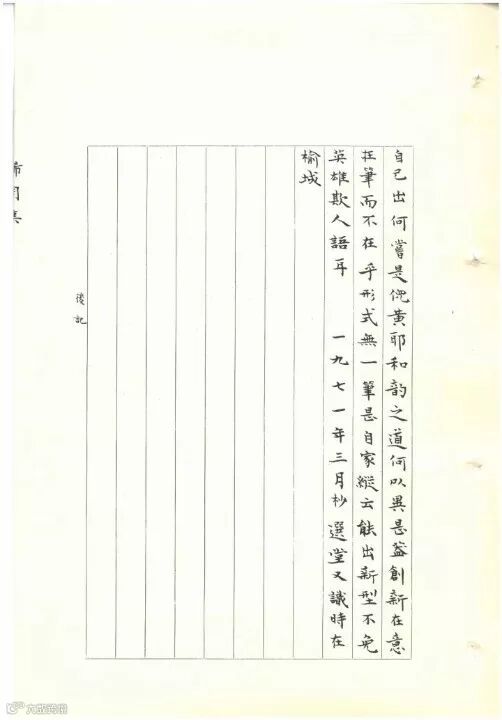 自己出何嘗是倪黃耶和韵之道何以異是蓋創新在意
在筆而不在乎形式無一筆是自家縱云能出新型不免
英雄欺人語耳　一九七一年三月杪選堂又識時在
榆城
後記